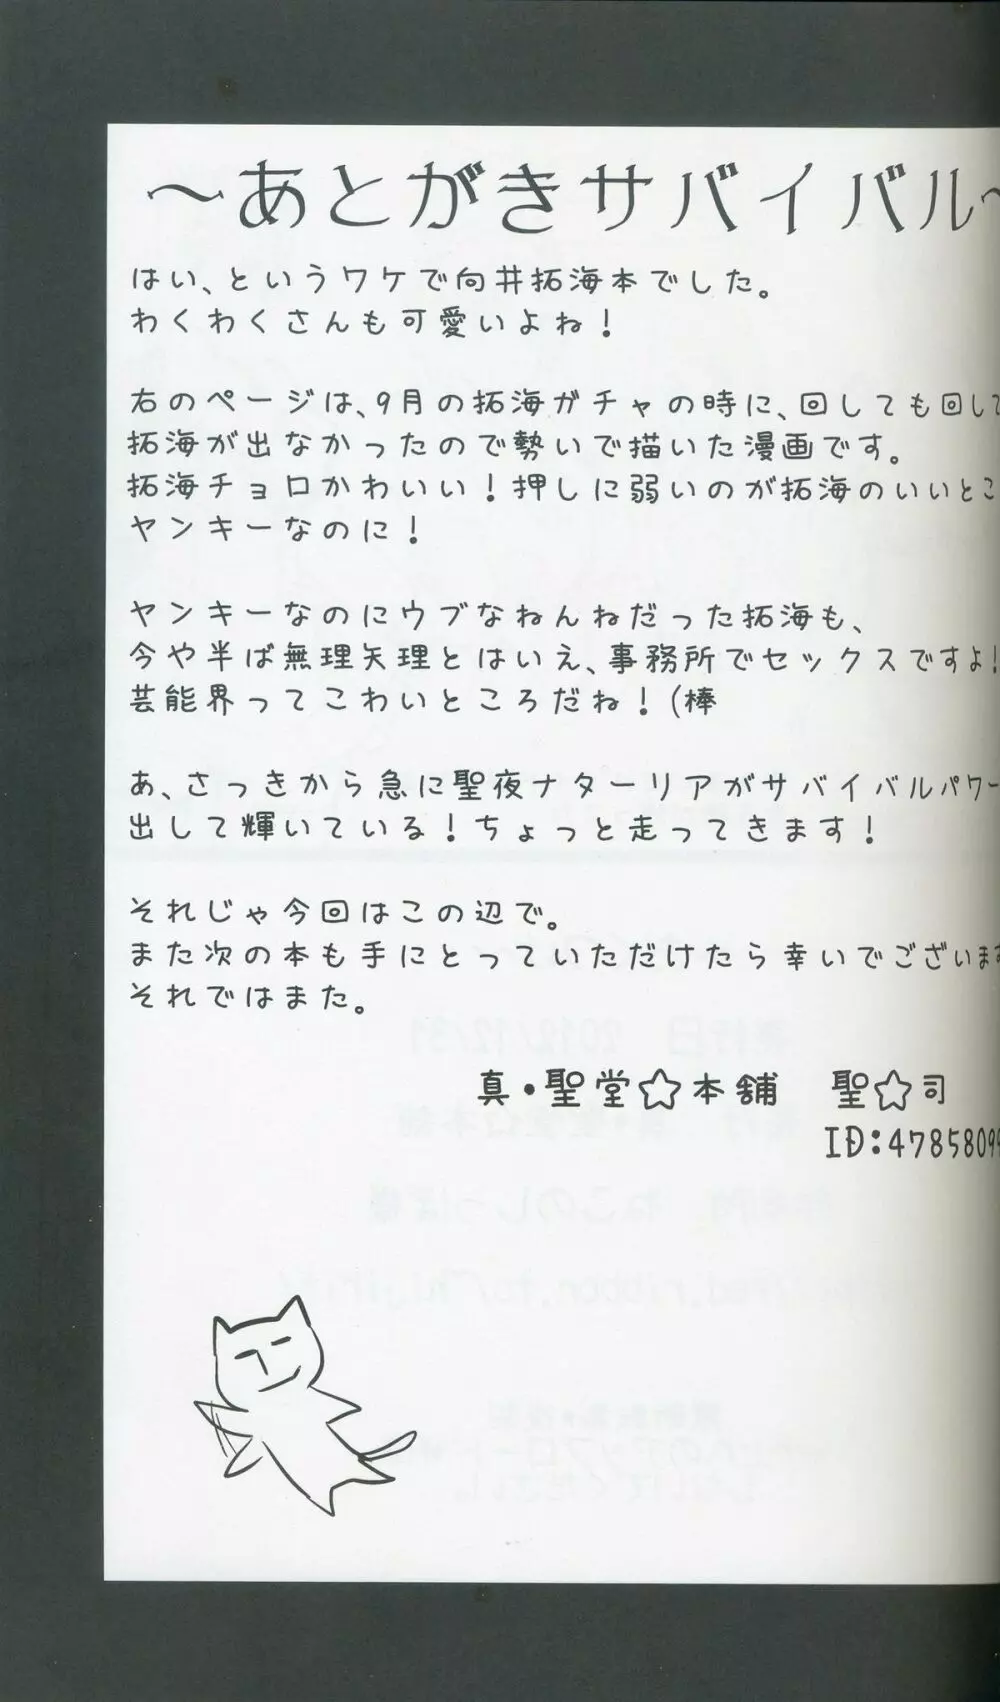 ～あとがきサバイバル～
はい、というワケで向井拓海本でした。
わくわくさんも可愛いよね！
右のページは、9月の拓海ガチャの時に、回しても回して
拓海が出なかったので勢いで描いた漫画です。
拓海チョロかわいい！押しに弱いのが拓海のいいとこ
ヤンキーなのに！
ヤンキーなのにウブなねんねだった拓海も、
今や半ば無理矢理とはいえ、事務所でセックスですよ！
芸能界ってこわいところだね！(棒
あ、さっきから急に聖夜ナターリアがサバイバルパワー
出して輝いている！ちょっと走ってきます！
それじゃ今回はこの辺で。
また次の本も手にとっていただけたら幸いでございます
それではまた。
真・聖堂☆本舗　聖☆司
ID:4785809